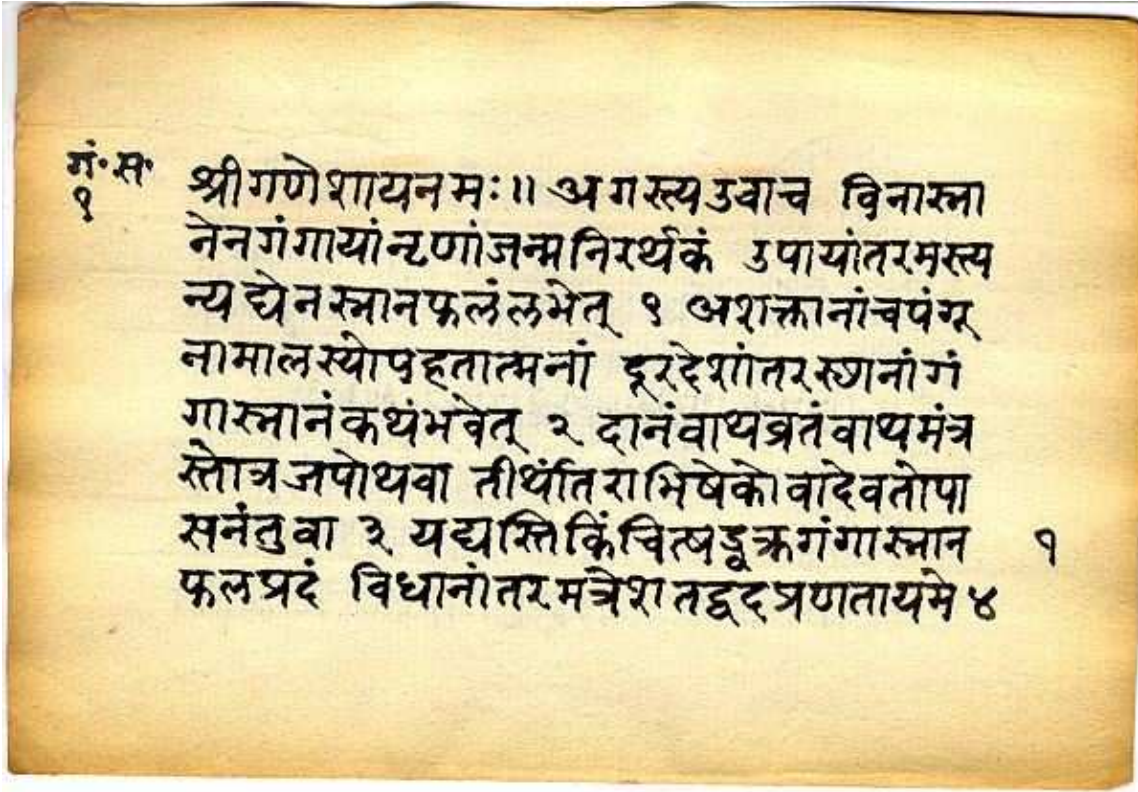 गं॰स॰
१
श्रीगणेशायनमः॥ अगस्त्यउवाच विनास्ना
नेनगंगायांनृणांजन्मनिरर्थकं उपायांतरमस्त्य
न्यद्येनस्नानफलंलभेत् १ अशक्तानांचपंगू
नामालस्योपहतात्मनां दूरदेशांतरस्थानांगं
गास्नानंकथंभवेत् २ दानंवाथव्रतंवाथमंत्र
स्तोत्रजपोथवा तीर्थांतराभिषेकोवादेवतोपा
सनंतुवा ३ यद्यस्तिकिंचित्षड्वक्त्रगंगास्नान
फलप्रदं विधानांतरमत्रेशतद्वदप्रणतायमे ४
१